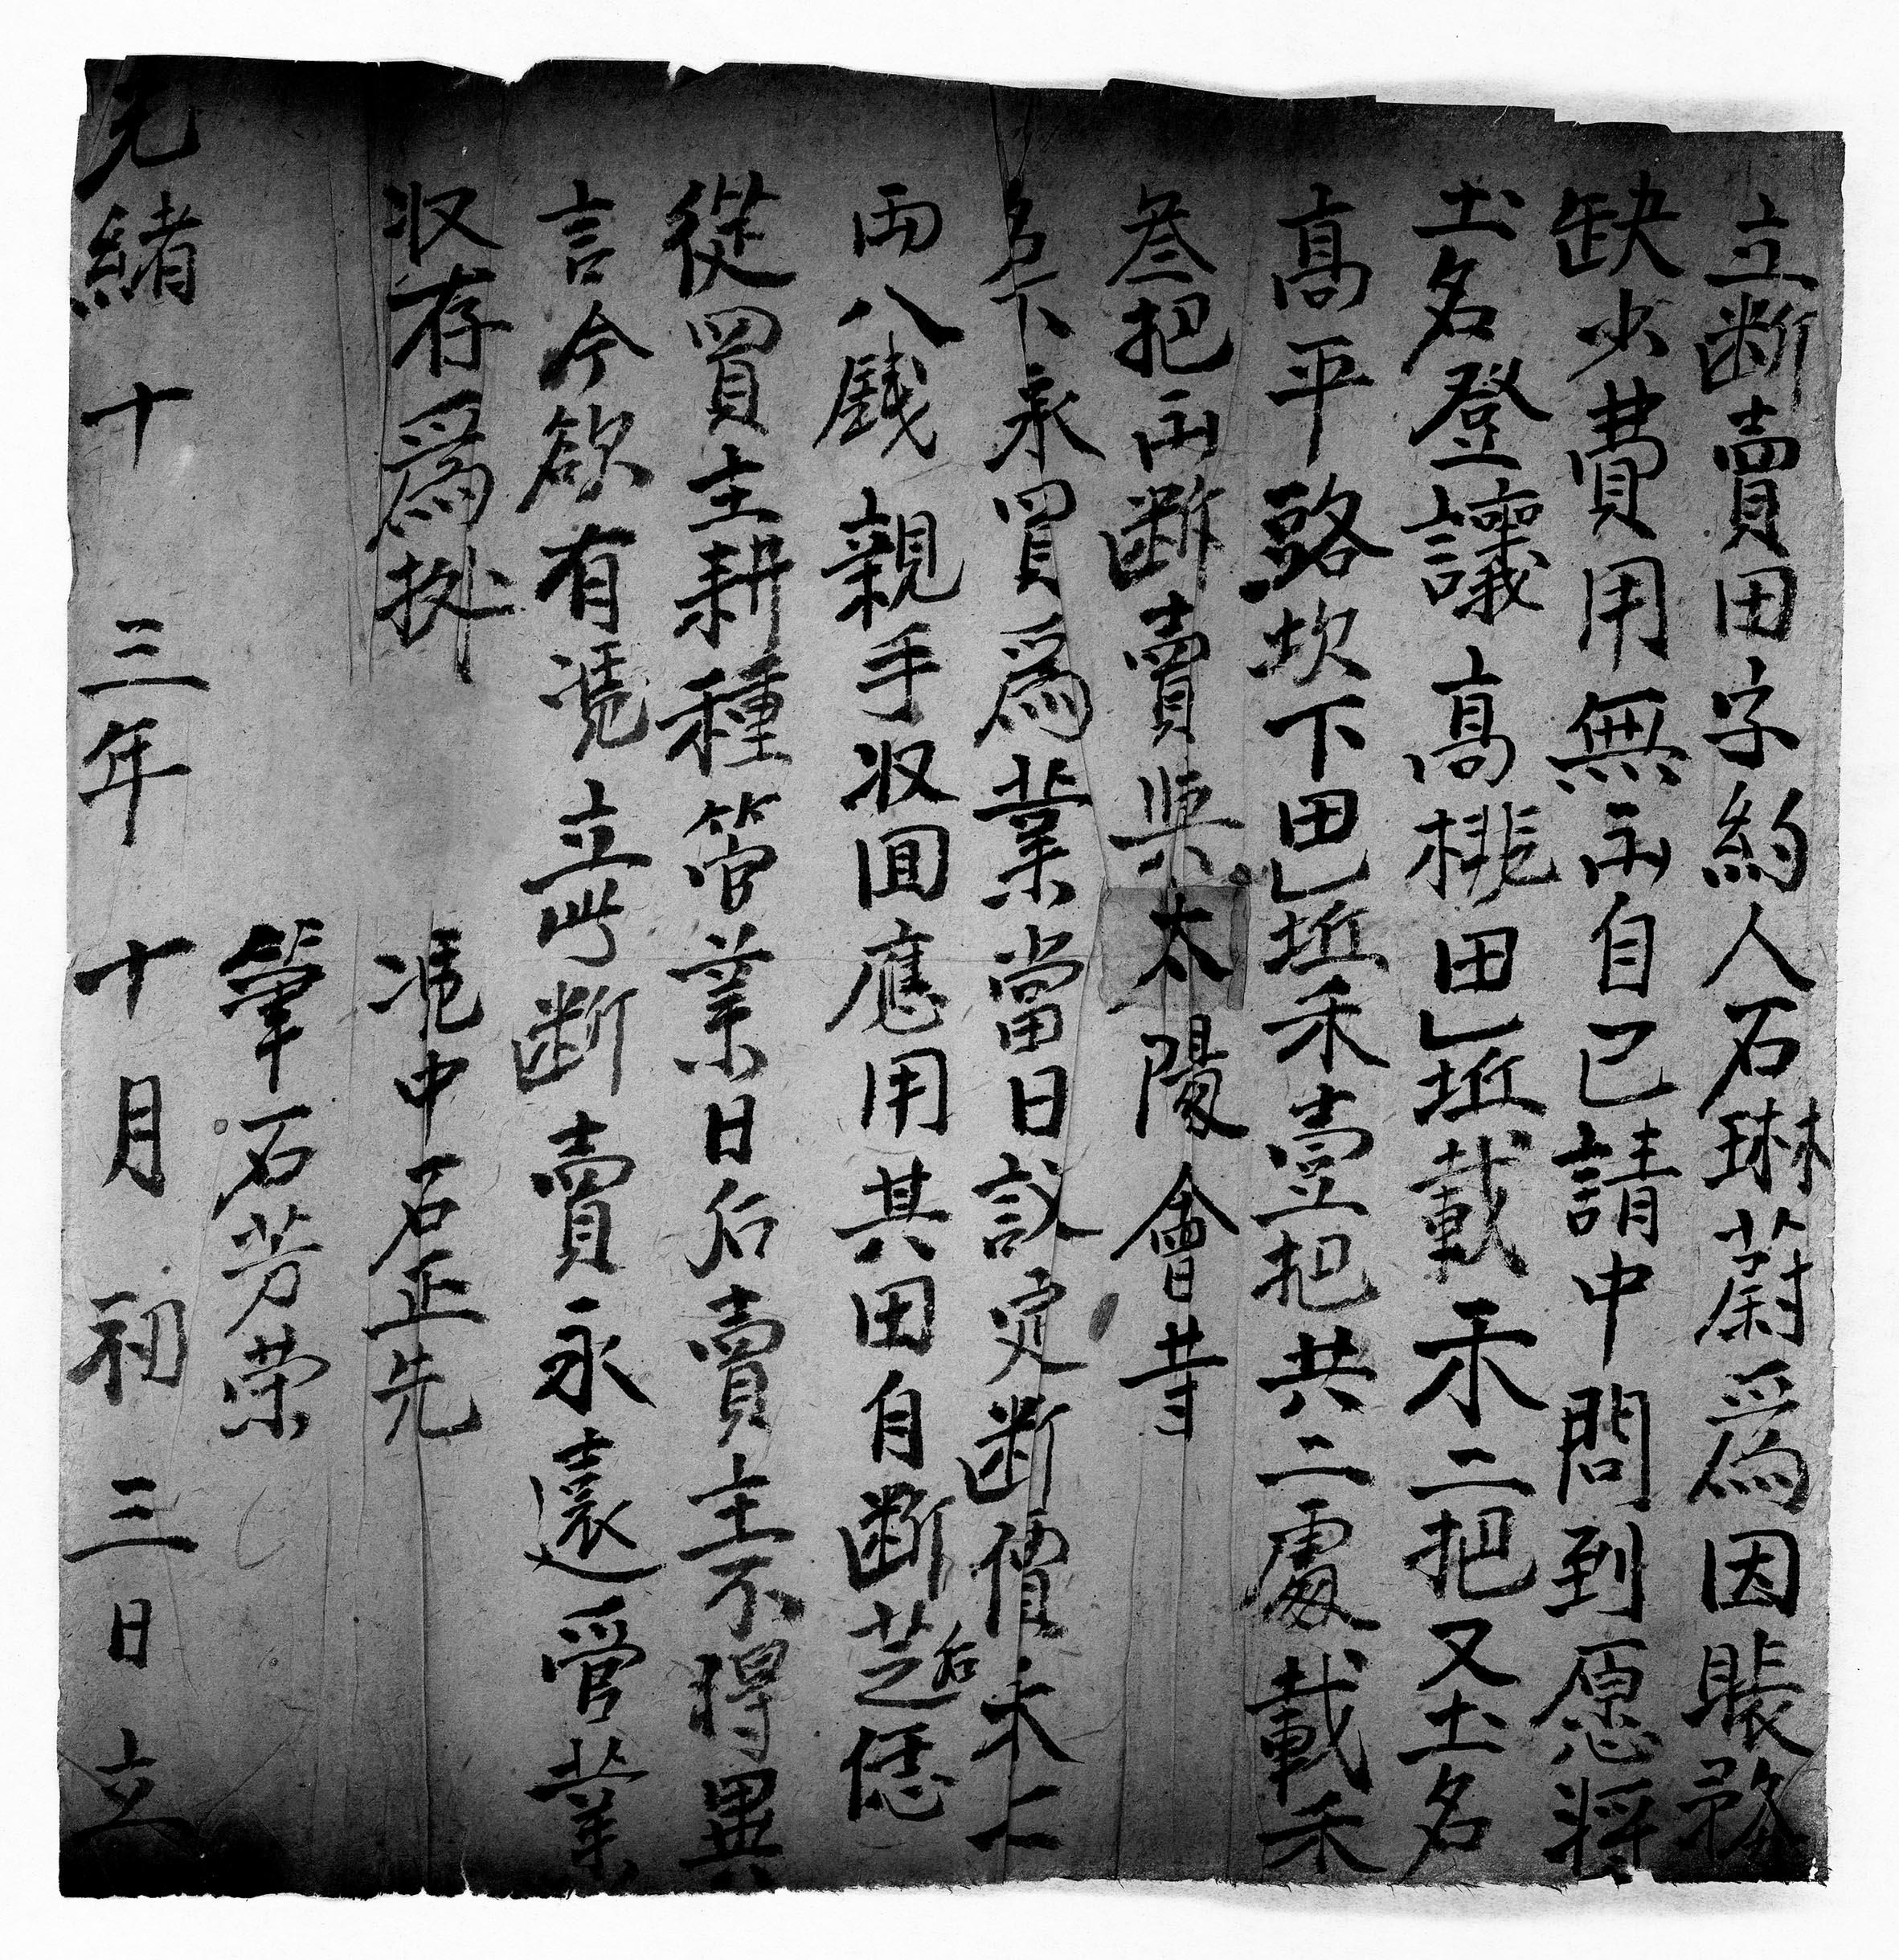 立断賣田字約人石琳蔚爲因賬務
缺少費用無出自己請中問到愿將
土名登高桃田乚坵載禾二把又土名
高平路坎下田乚坵禾壹把共二處載禾
叁把出断賣與太陽會
名下承買爲業當日議定断價二
両八錢親手收囬應用其田自断芝后恁
從買主耕種管業日后賣主不得異
言今欲有凴立此断賣永遠管業
收存爲據 凴中石正先
筆石芳荣
光緒十三年十月初三日立